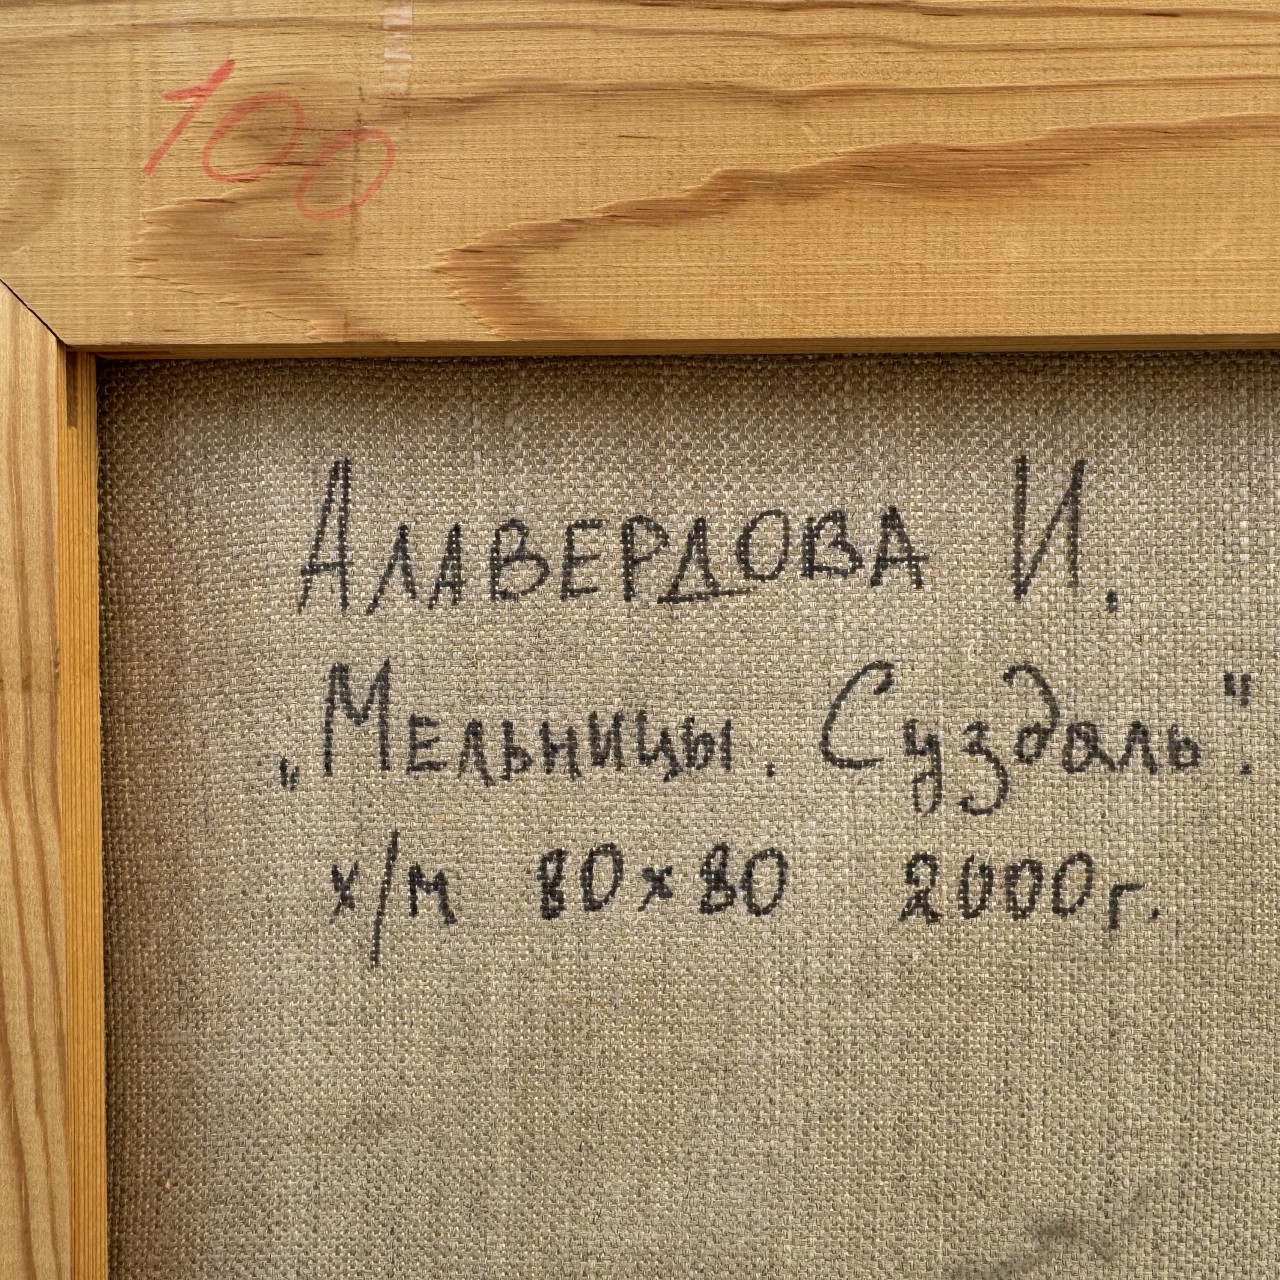 100
Алавердова И.
„Мельницы. Суздаль".
х/м 80х80 2000г.